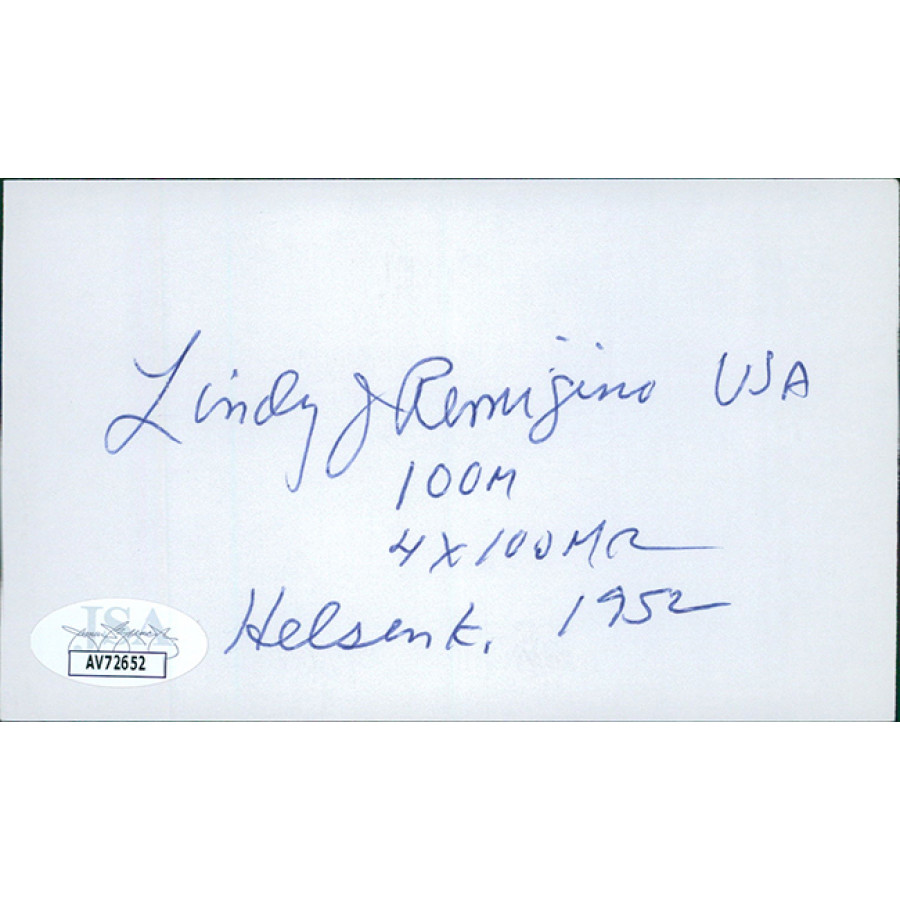 Lindy J Remigino USA
100M
4X100MR
Helsenki 1952
JSA
AV72652